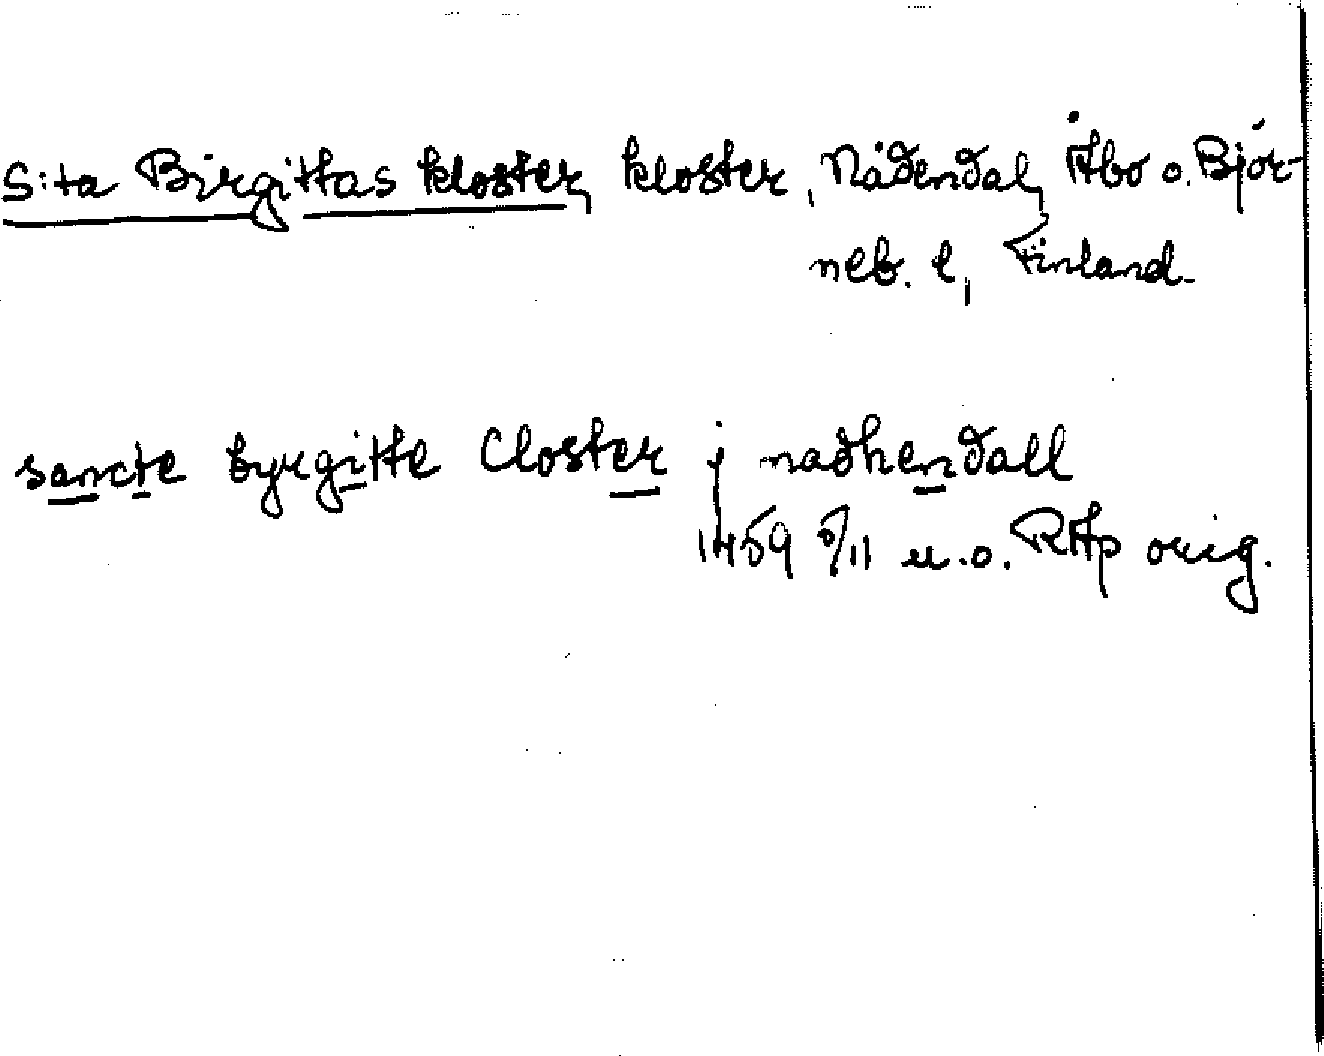 S:ta Birgittas kloster, kloster, Nådendal, Åbo o. Björ-
neb. l, Finland.
sancte byrgitte Closter j nadhendall
1459 5/11 u.o. RAp orig.